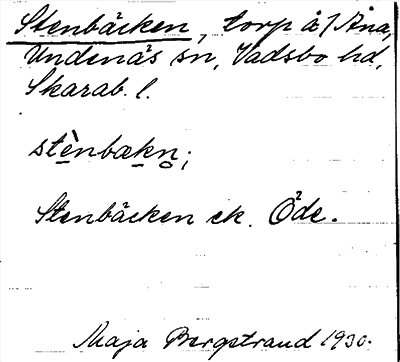 Stenbäcken, torp å 1/ Åna,
Undenäs sn, Vadsbo hd,
Skarab. l.
stènbækn̥;
Stenbäcken ek. Öde.
Maja Bergstrand 1930.